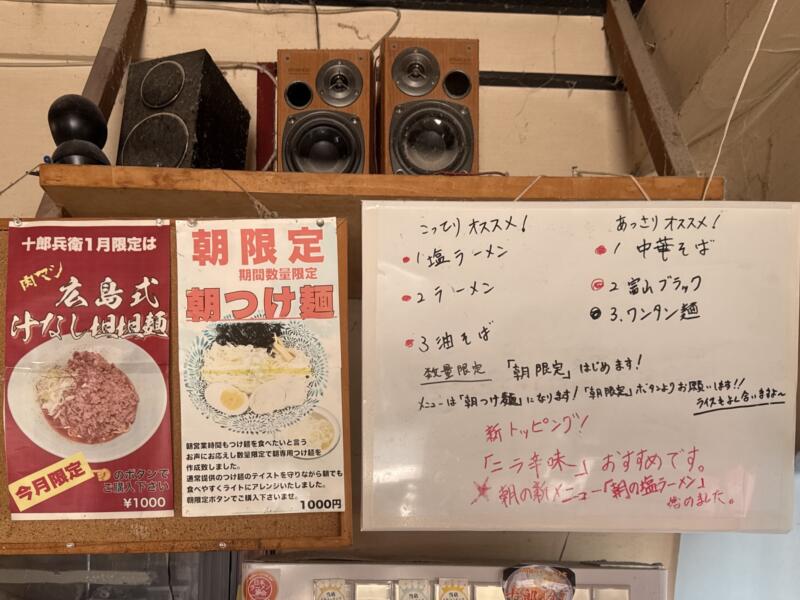 十郎兵衛1月限定は
肉マシ
広島式
汁なし坦坦麺
今月限定
のボタンで
ご購入下さい
¥1000
朝限定
期間数量限定
朝つけ麺
朝営業時間もつけ麺を食べたいと言う
お声にお応えし数量限定で朝専用つけ麺を
作成致しました。
通常提供のつけ麺のテイストを守りながら朝でも
食べやすくライトにアレンジいたしました。
朝限定ボタンでご購入下さいませ。
1000円
こってりオススメ!
1塩ラーメン
2ラーメン
3油そば
あっさりオススメ!
1中華そば
2富山ブラック
3.ワンタン麺
数量限定 「朝限定」はじめます!
メニューは「朝つけ麺」になります!「朝限定」ボタンよりお願いします!!
ライスもよし合いますよ〜
新トッピング!
「ニラ辛味」おすすめです。
朝の新メニュー「朝の塩ラーメン」